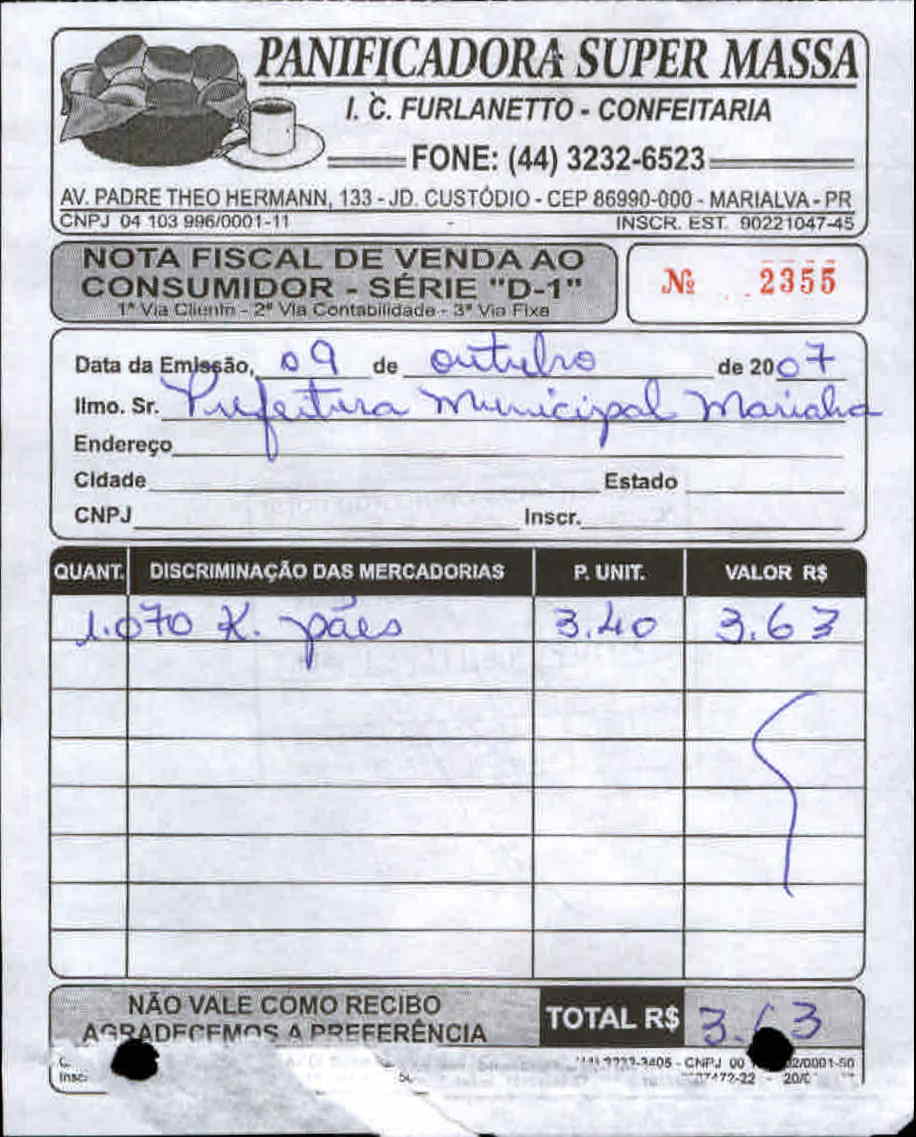 PANIFICADORA SUPER MASSA
I. C. FURLANETTO - CONFEITARIA
FONE: (44) 3232-6523
AV. PADRE THEO HERMANN, 133 - JD. CUSTÓDIO - CEP 86990-000 - MARIALVA - PR
CNPJ 04 103 996/0001-11 - INSCR. EST. 90221047-45
NOTA FISCAL DE VENDA AO
CONSUMIDOR - SÉRIE "D-1"
1ª Via Cliente - 2ª Via Contabilidade - 3ª Via Fixa
Nº 2355
Data da Emissão, 09 de outubro de 2007
Ilmo. Sr. Prefeitura Municipal Marialva
Endereço
Cidade Estado
CNPJ Inscr.
QUANT. DISCRIMINAÇÃO DAS MERCADORIAS P. UNIT. VALOR R$
1.070 K. pães 3.40 3.63
NÃO VALE COMO RECIBO
AGRADECEMOS A PREFERÊNCIA
TOTAL R$ 3.63
-3405 - CNPJ 00 2/0001-50
72-22 - 20/